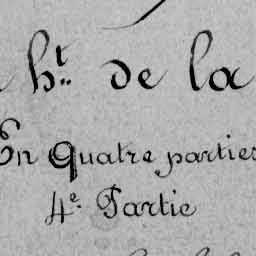 ht. de la
En quatre parties
4e. Partie